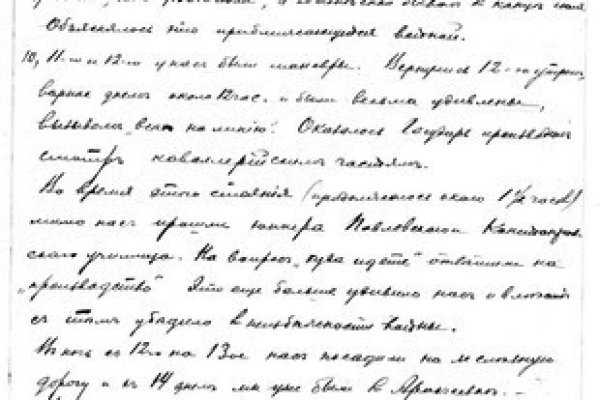 Объяснялось это приближающейся войной.
10, 11-го и 12-го у нас были маневры. Вернулись 12-го утром,
вернее днем около 12 час. и были весьма удивлены,
вызовом „всех на линию". Оказалось Государь производит
смотр кавалерийским частям.
Во время этого стояния (продолжалось около 1½ часов)
мимо нас прошли юнкера Павловского
училища. На вопрос „куда идете" ответили на
„производство" Это еще больше удивило нас и
с тем убедило в неизбежности войны.
В ночь с 12го на 13ое нас посадили на железную
дорогу и в 14 днем мы уже были в